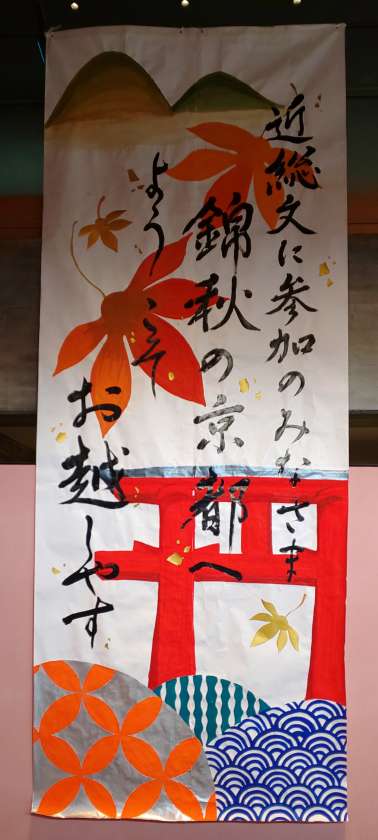 近総文に参加のみなさま
錦秋の京都へ
ようこそ
お越しやす